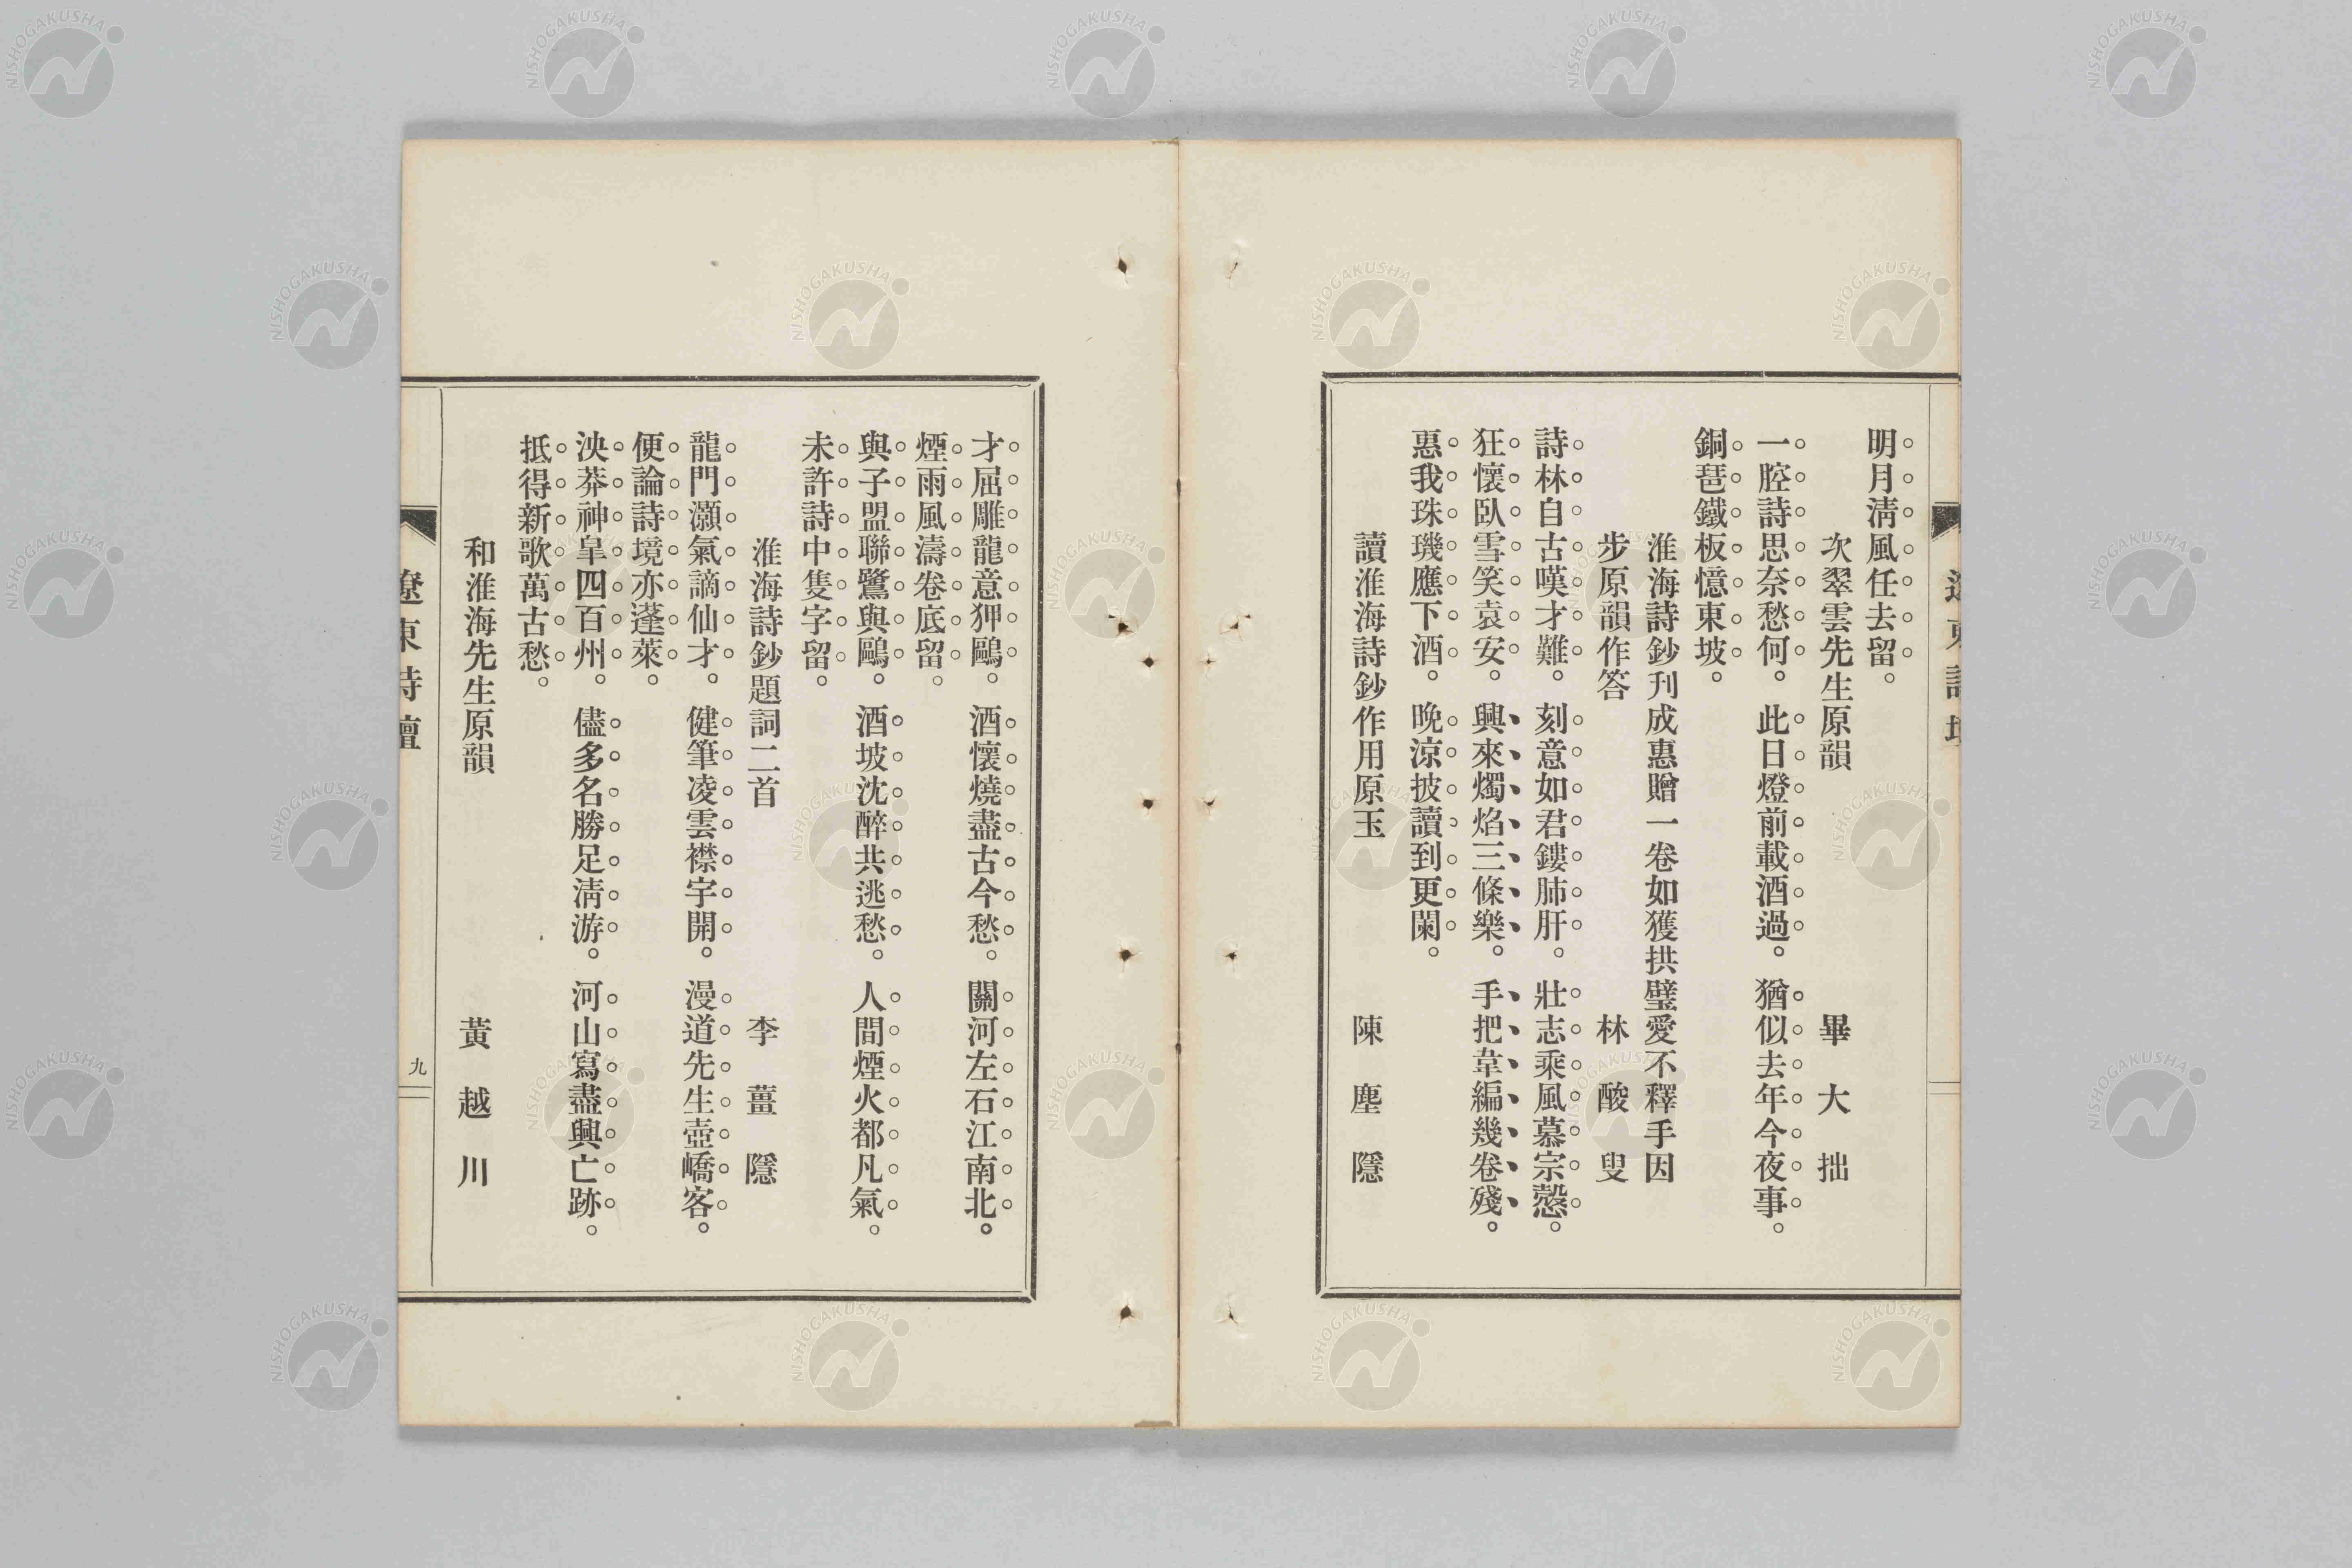 明月淸風任去留。
次翠雲先生原韻　畢大拙
一腔詩思奈愁何。此日燈前載酒過。猶似去年今夜事。
銅琶鐵板憶東坡。
淮海詩鈔刋成惠贈一卷如獲拱璧愛不釋手因
步原韻作答　林酸叟
詩林自古嘆才難。刻意如君鏤肺肝。壯志乘風慕宗愨。
狂懷臥雪笑袁安。興來燭焰三條樂。手把韋編幾卷殘。
惠我珠璣應下酒。晩涼披讀到更闌。
讀淮海詩鈔作用原玉　陳塵隱
才屈雕龍意狎鷗。酒懷燒盡古今愁。關河左石江南北。
煙雨風濤卷底留。
與子盟聯鷺與鷗。酒坡沈醉共逃愁。人間煙火都凡氣。
未許詩中隻字留。
淮海詩鈔題詞二首　李薑隱
龍門灝氣謫仙才。健筆凌雲襟宇開。漫道先生壺嶠客。
便論詩境亦蓬萊。
泱莽神皐四百州。儘多名勝足淸游。河山寫盡興亡跡。
抵得新歌萬古愁。
和淮海先生原韻　黃越川
遼東詩壇
九
NISHOGAKUSHA